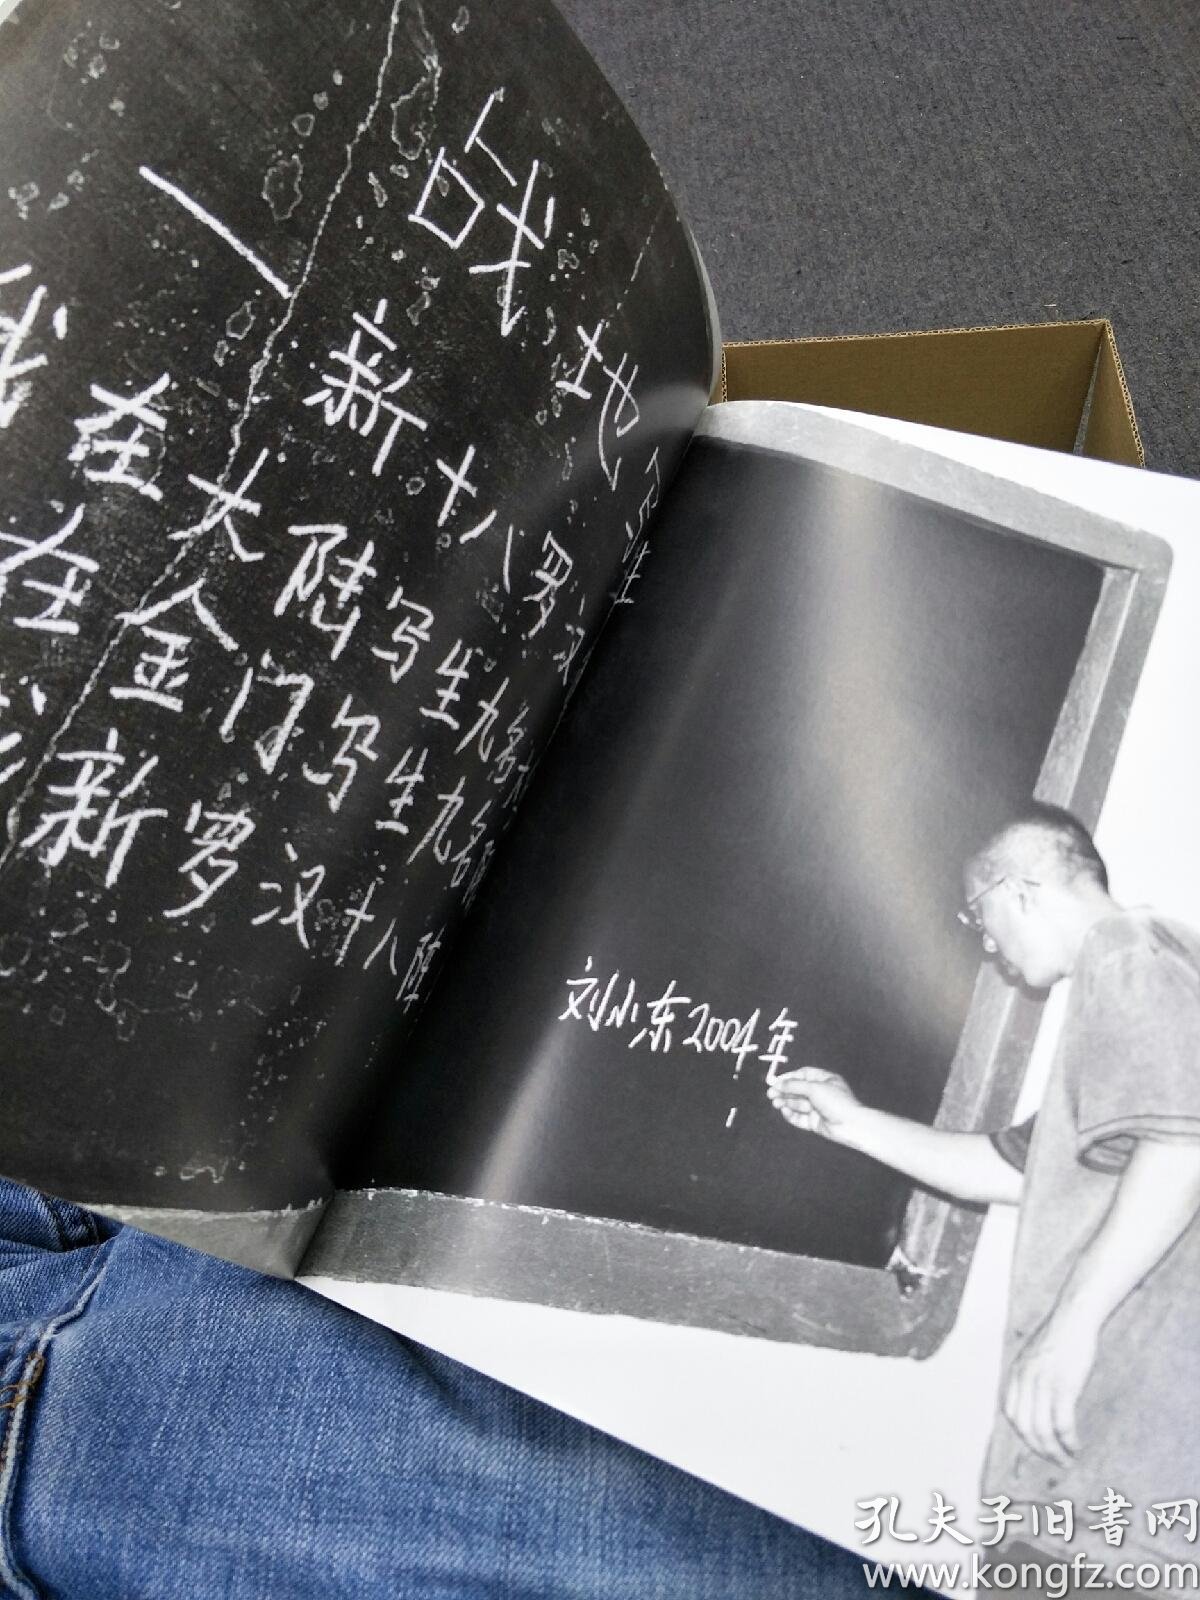 战地写生
—新十八罗汉
我在大陆写生九名
在金门写生九名
新罗汉十八
刘小东2004年
孔夫子旧书网
www.kongfz.com